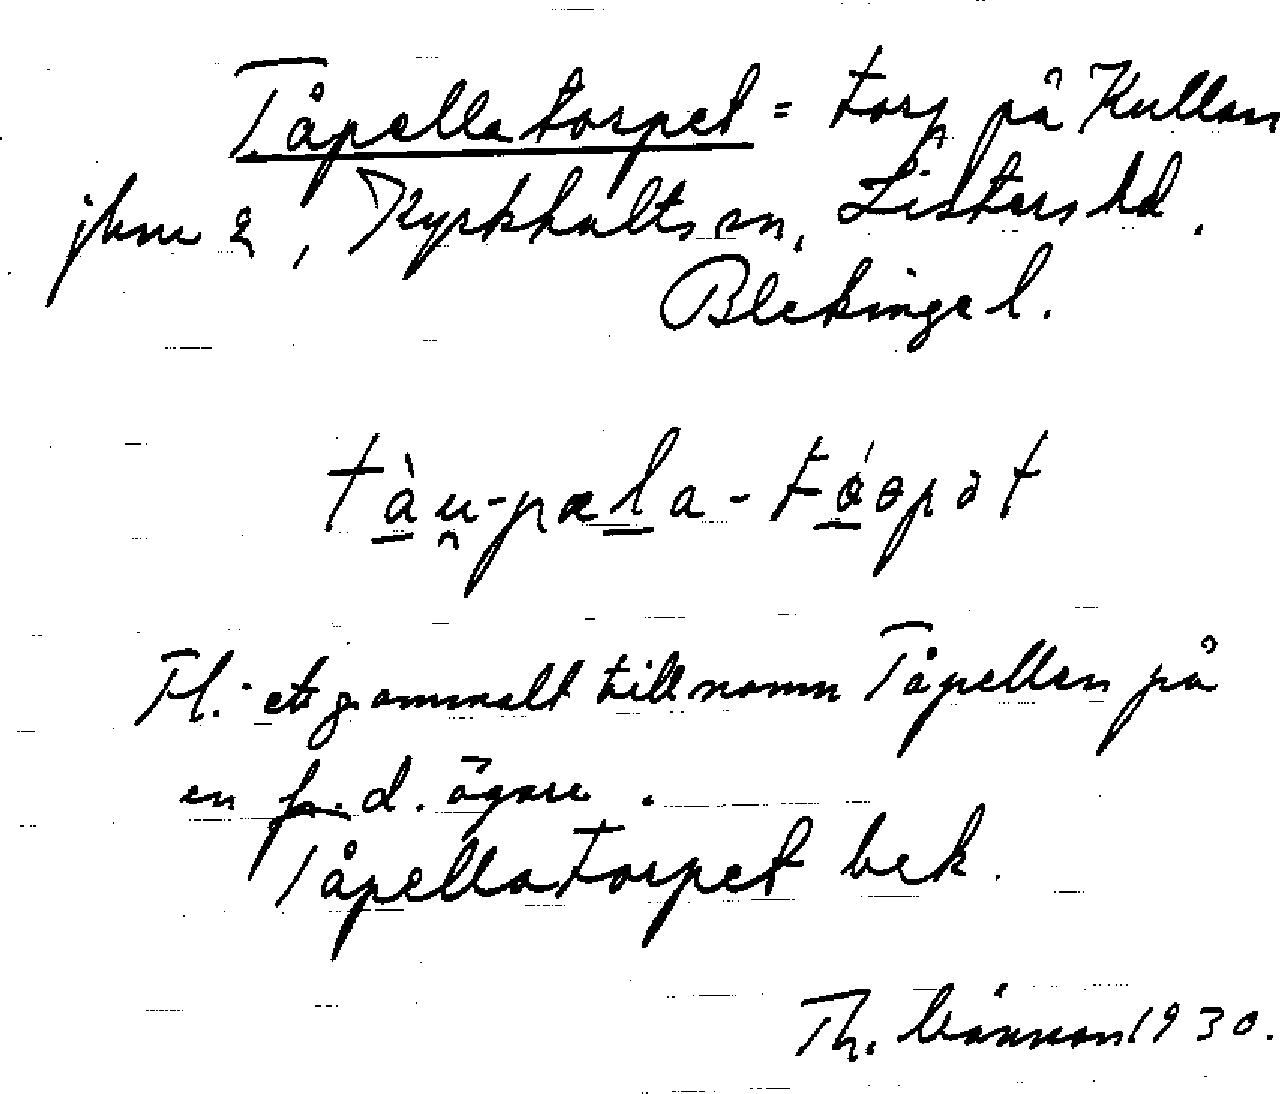 Tåpellatorpet = torp på Kullen
2, Kyrkhults sn, Listers hd,
Blekinge l.
tàu-pæla-tóopət
Fl. - ett gammalt tillnamn Tåpellen på
en f. d. ägare.
Tåpellatorpet bek.
Th. 1930.